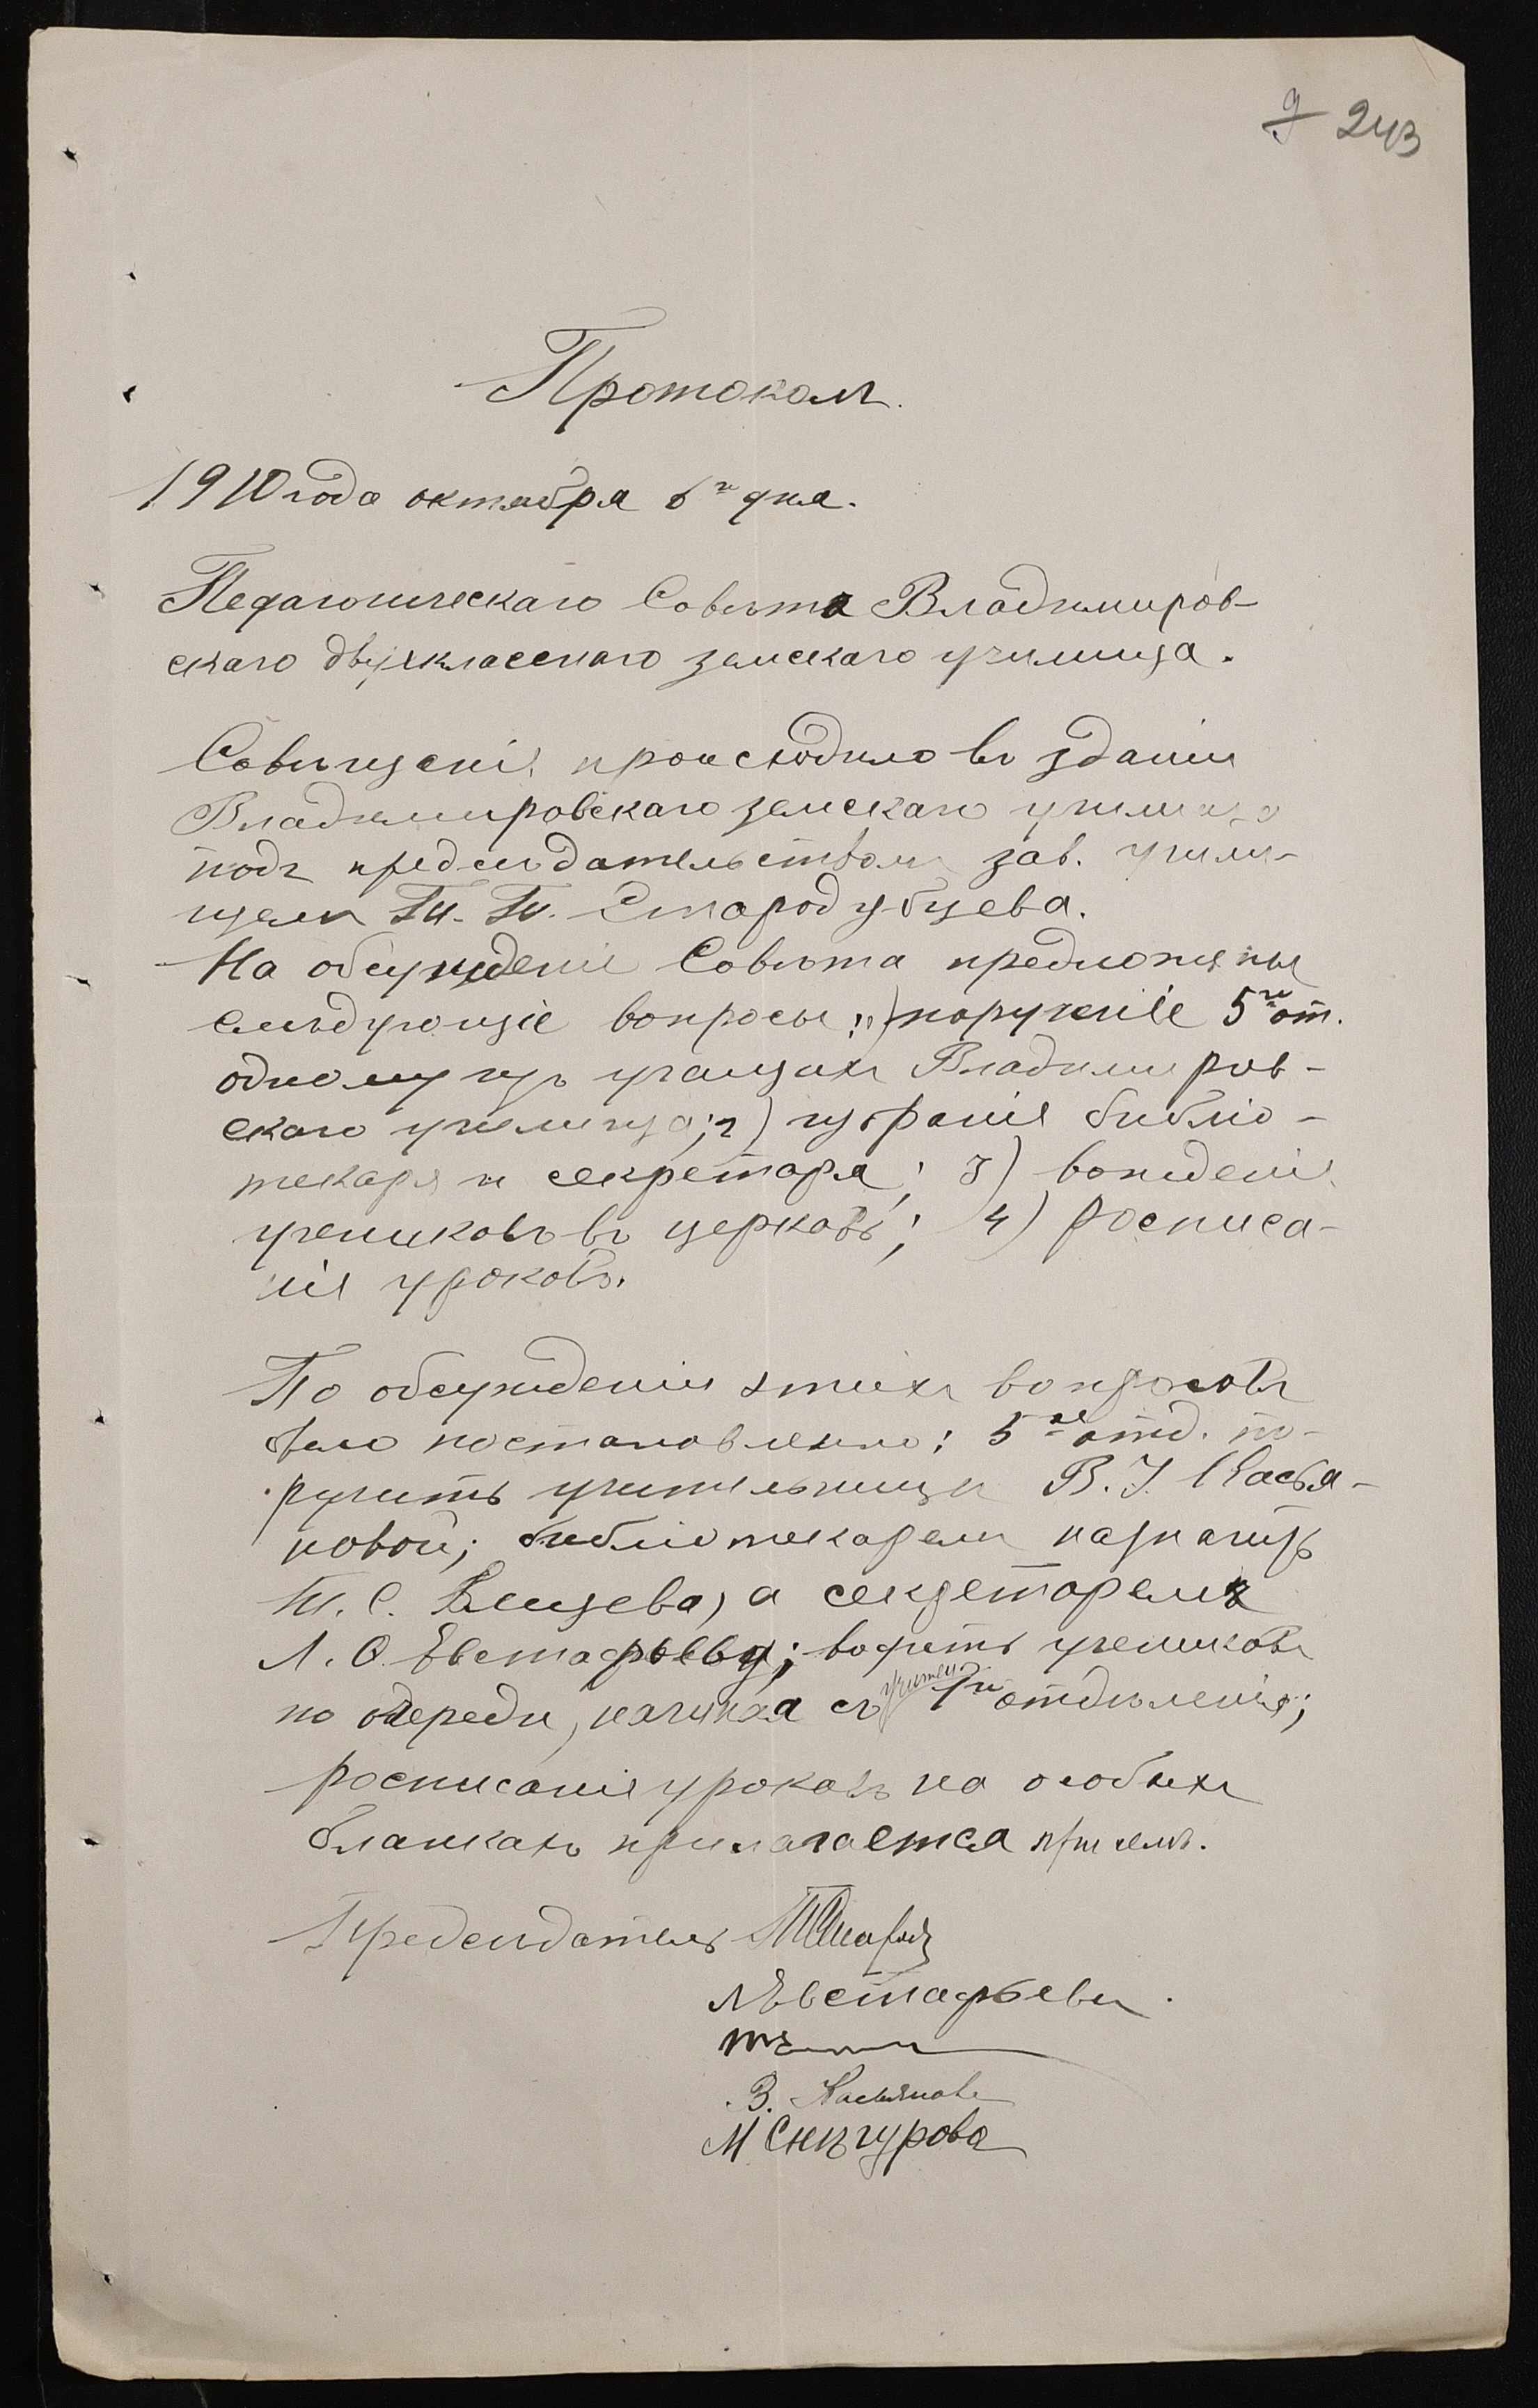 243
Протоколъ.
1910 года октября 6го дня.
Педагогическаго Совѣта Владимиров-
скаго двухкласснаго земскаго училища.
Совѣщаніе происходило въ зданіи
Владимировскаго земскаго училища
подъ предсѣдательствомъ зав. учили-
щемъ Т. Т. Стародубцева.
На обсужденіе Совѣта предложены
слѣдующіе вопросы: 1) порученіе 5го от.
одному изъ учащихъ Владимиров-
скаго училища; 2) избранія библіо-
текаря и секретаря; 3) вожденія
учениковъ въ церковь; 4) росписа-
нія уроковъ.
По обсужденіи этихъ вопросовъ
было постановлено: 5ое отд. по-
ручить учительницѣ В. І. Касья-
новой; библіотекаремъ назначить
Т. С. а секретаремъ
Л. О. Евстафьеву; водить учениковъ
по очереди, начиная съ учител. 1го отдѣленія;
росписанія уроковъ на особыхъ
бланкахъ прилагается при семъ.
Предсѣдатель
Л Евстафьева.
В. Касьянова
М. Снѣгурова